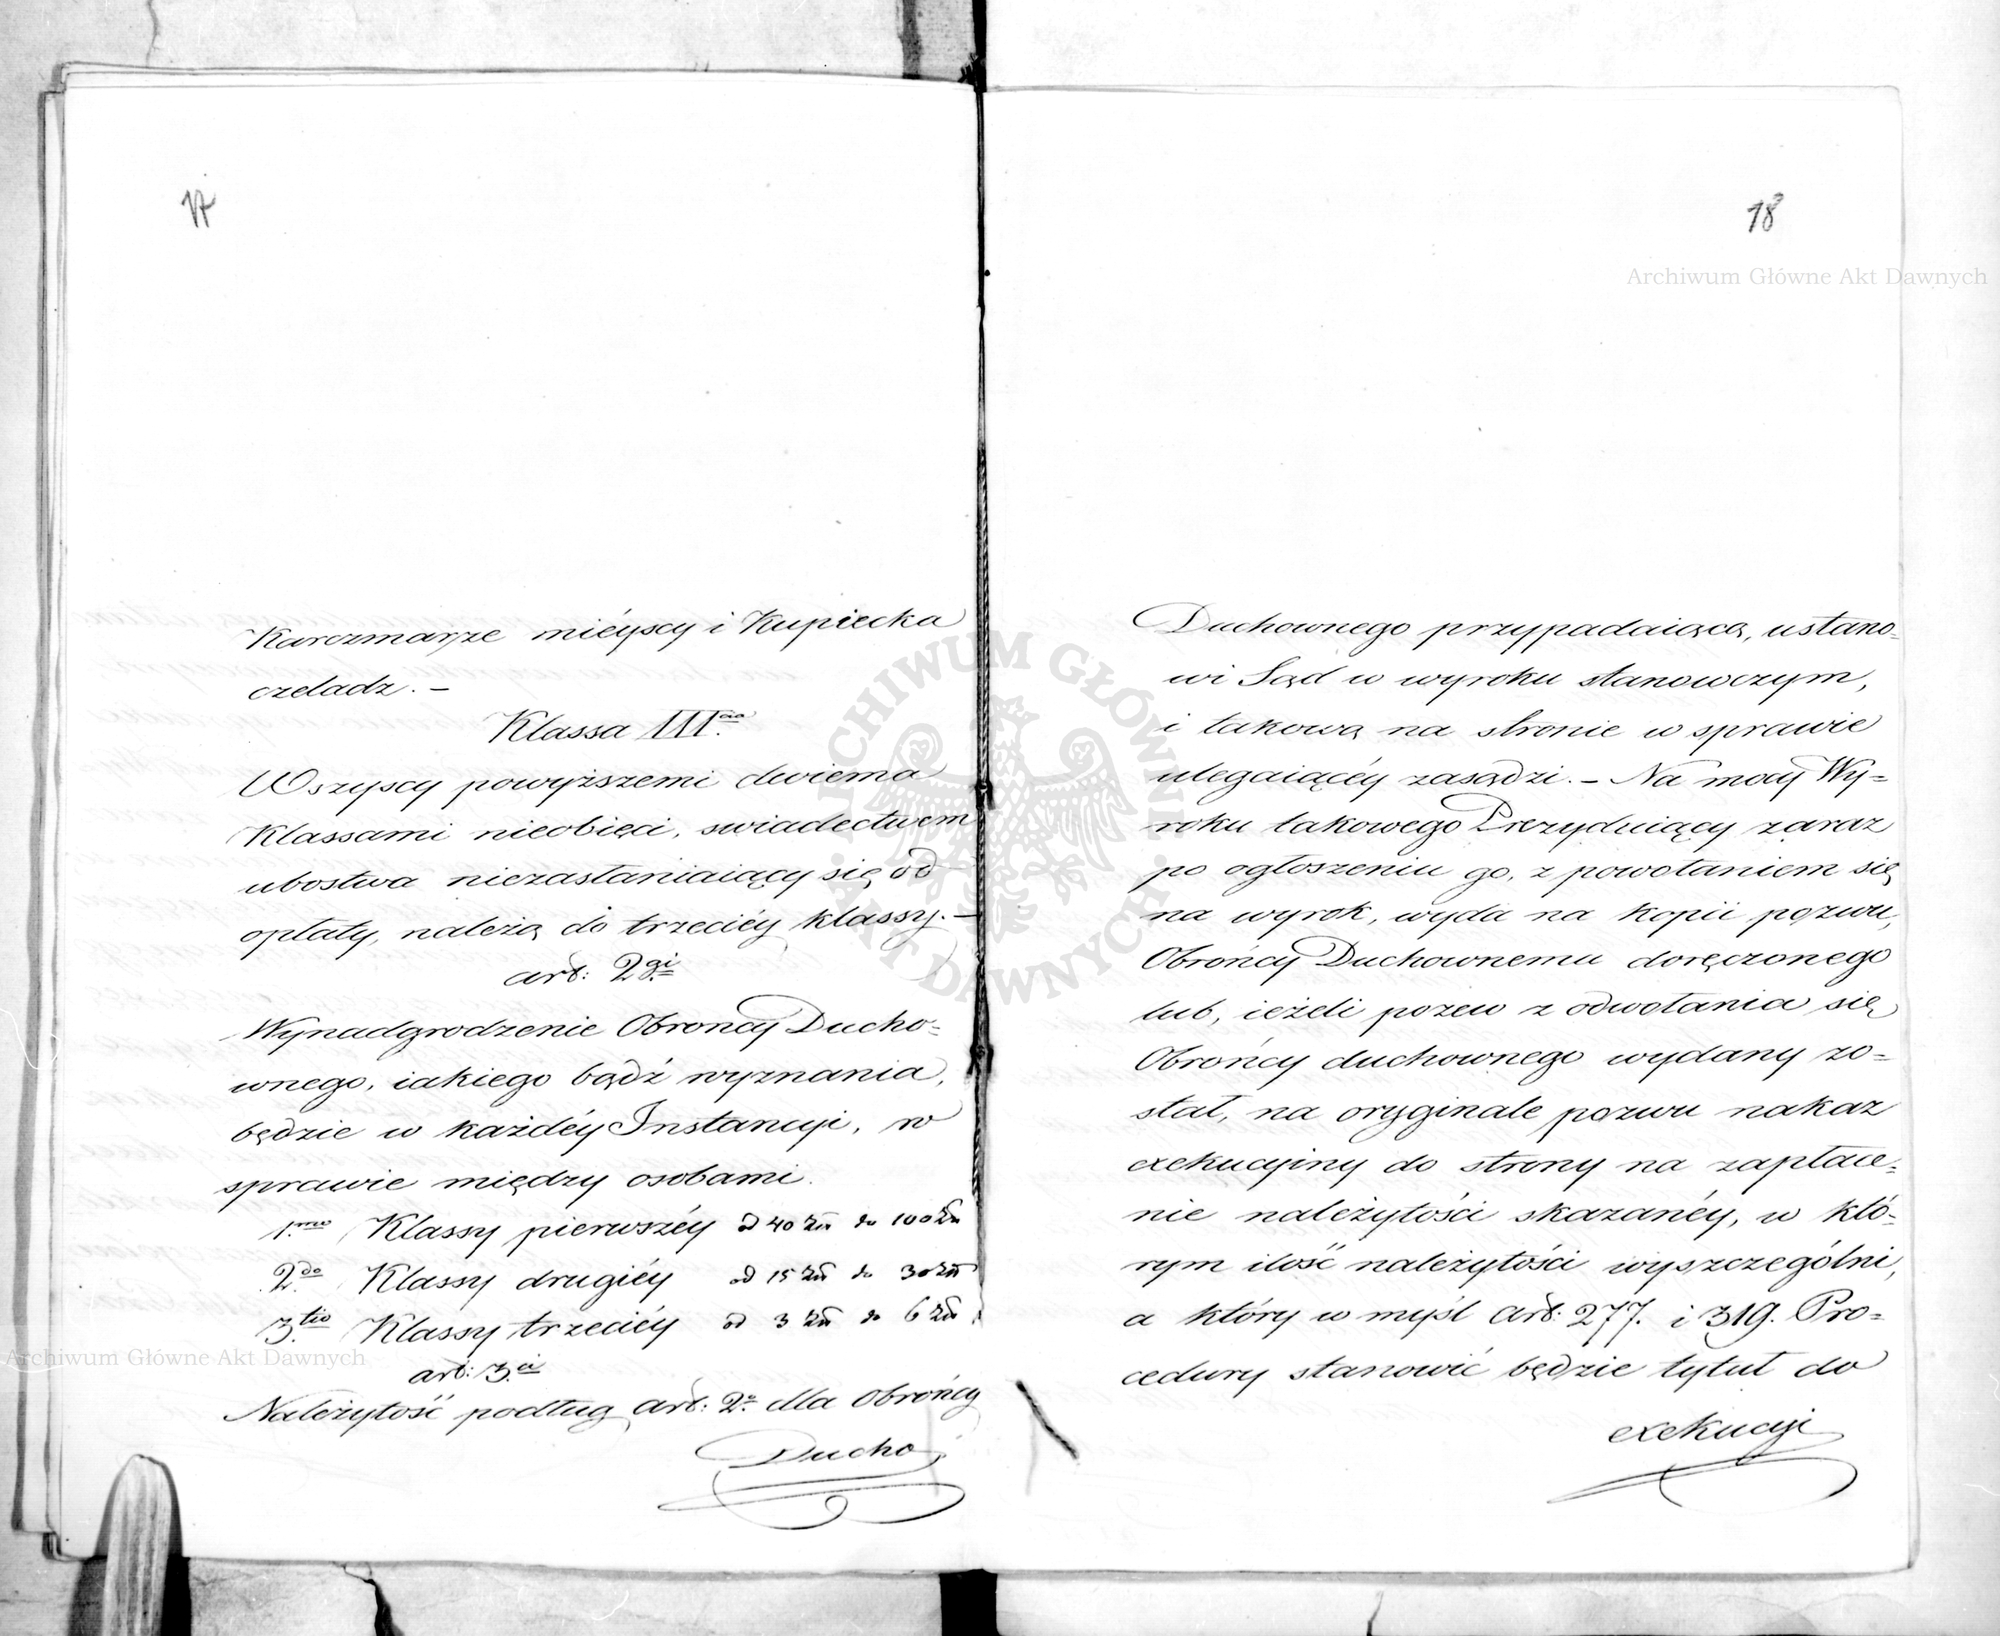 17
Karczmarze mieyscy i Kupiecka
czeladz. –
Klassa III.cia
Wszyscy powyższemi dwiema
Klassami nieobięci, swiadectwem
ubostwa niezastaniaiący się od
opłaty, należą do trzeciéy klassy. –
art: 2.gi
Wynadgrodzenie Obroncy Ducho=
wnego, iakiego bądź wyznania,
będzie w każdéy Instancyi, w
sprawie między osobami.
1.mo Klassy pierwszéy od 40 Złł do 100 Złł
2.do Klassy drugiéy od 15 Złł do 30 Złł
3.tio Klassy trzeciéy od 3 Złł do 6 Złł
art: 3.ci
Należytość podług art: 2.o dla Obrońcy
Ducho
18
Duchownego przypadaiącą, ustano=
wi Sąd w wyroku stanowczym,
i takową na stronie w sprawie
ulegaiącéy zasądzi. – Na mocy Wy=
roku takowego Prezyduiący zaraz
po ogłoszeniu go, z powołaniem się
na wyrok, wyda na kopii pozwu,
Obrońcy Duchownemu doręczonego
lub, ieżeli pozew z odwołania się
Obrońcy duchownego wydany zo=
stał, na oryginale pozwu nakaz
exekucyiny do strony na zapłace=
nie należytości skazanéy, w któ=
rym ilość należytości wyszczególni,
a który w myśl art: 277. i 319. Pro=
cedury stanowić będzie tytuł do
exekucyi
Archiwum Główne Akt Dawnych
Archiwum Główne Akt Dawnych
ARCHIWUM GŁÓWNE AKT DAWNYCH